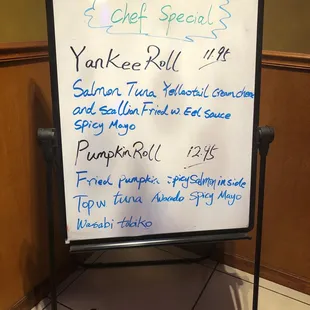 Chef Special
Yankee Roll 11.95
Salmon Tuna Yellowtail cream cheese
and scallion Fried w Eel sauce
spicy Mayo
Pumpkin Roll 12.95
Fried pumpkin spicy Salmon inside
Top w tuna Avocado spicy Mayo
Wasabi tobiko